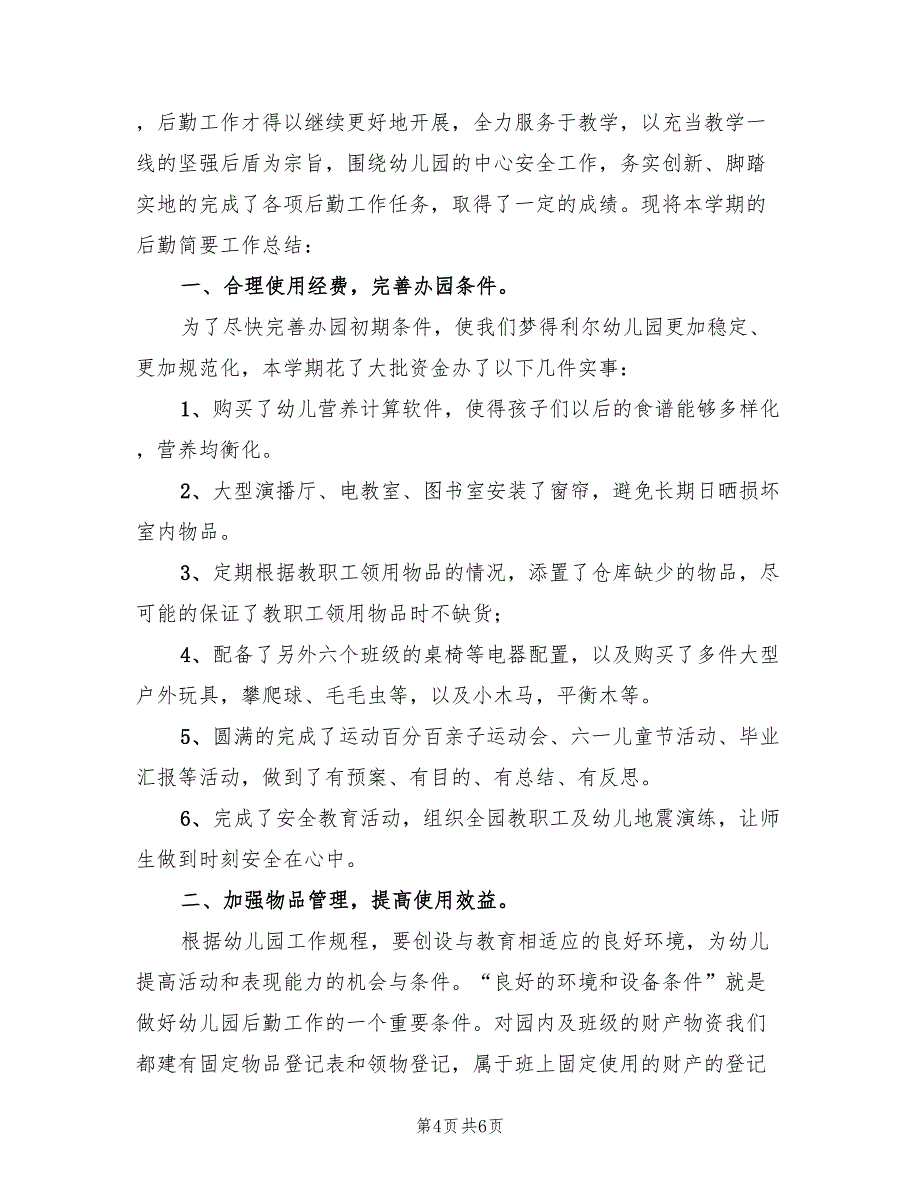 ，后勤工作才得以继续更好地开展，全力服务于教学，以充当教学一
线的坚强后盾为宗旨，围绕幼儿园的中心安全工作，务实创新、脚踏
实地的完成了各项后勤工作任务，取得了一定的成绩。现将本学期的
后勤简要工作总结：
一、合理使用经费，完善办园条件。
为了尽快完善办园初期条件，使我们梦得利尔幼儿园更加稳定、
更加规范化，本学期花了大批资金办了以下几件实事：
1、购买了幼儿营养计算软件，使得孩子们以后的食谱能够多样化
，营养均衡化。
2、大型演播厅、电教室、图书室安装了窗帘，避免长期日晒损坏
室内物品。
3、定期根据教职工领用物品的情况，添置了仓库缺少的物品，尽
可能的保证了教职工领用物品时不缺货；
4、配备了另外六个班级的桌椅等电器配置，以及购买了多件大型
户外玩具，攀爬球、毛毛虫等，以及小木马，平衡木等。
5、圆满的完成了运动百分百亲子运动会、六一儿童节活动、毕业
汇报等活动，做到了有预案、有目的、有总结、有反思。
6、完成了安全教育活动，组织全园教职工及幼儿地震演练，让师
生做到时刻安全在心中。
二、加强物品管理，提高使用效益。
根据幼儿园工作规程，要创设与教育相适应的良好环境，为幼儿
提高活动和表现能力的机会与条件。“良好的环境和设备条件”就是
做好幼儿园后勤工作的一个重要条件。对园内及班级的财产物资我们
都建有固定物品登记表和领物登记，属于班上固定使用的财产的登记
第4页共6页